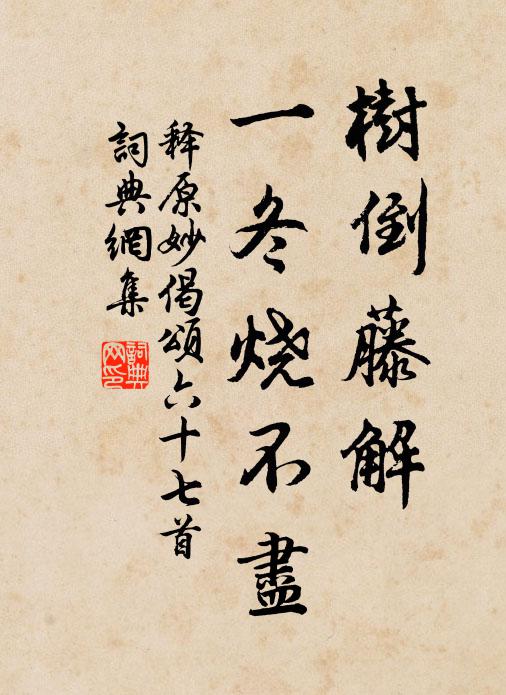 樹倒藤解
一冬烧不盡
释原妙偈頌六十七首
詞典網集
詞典
网印